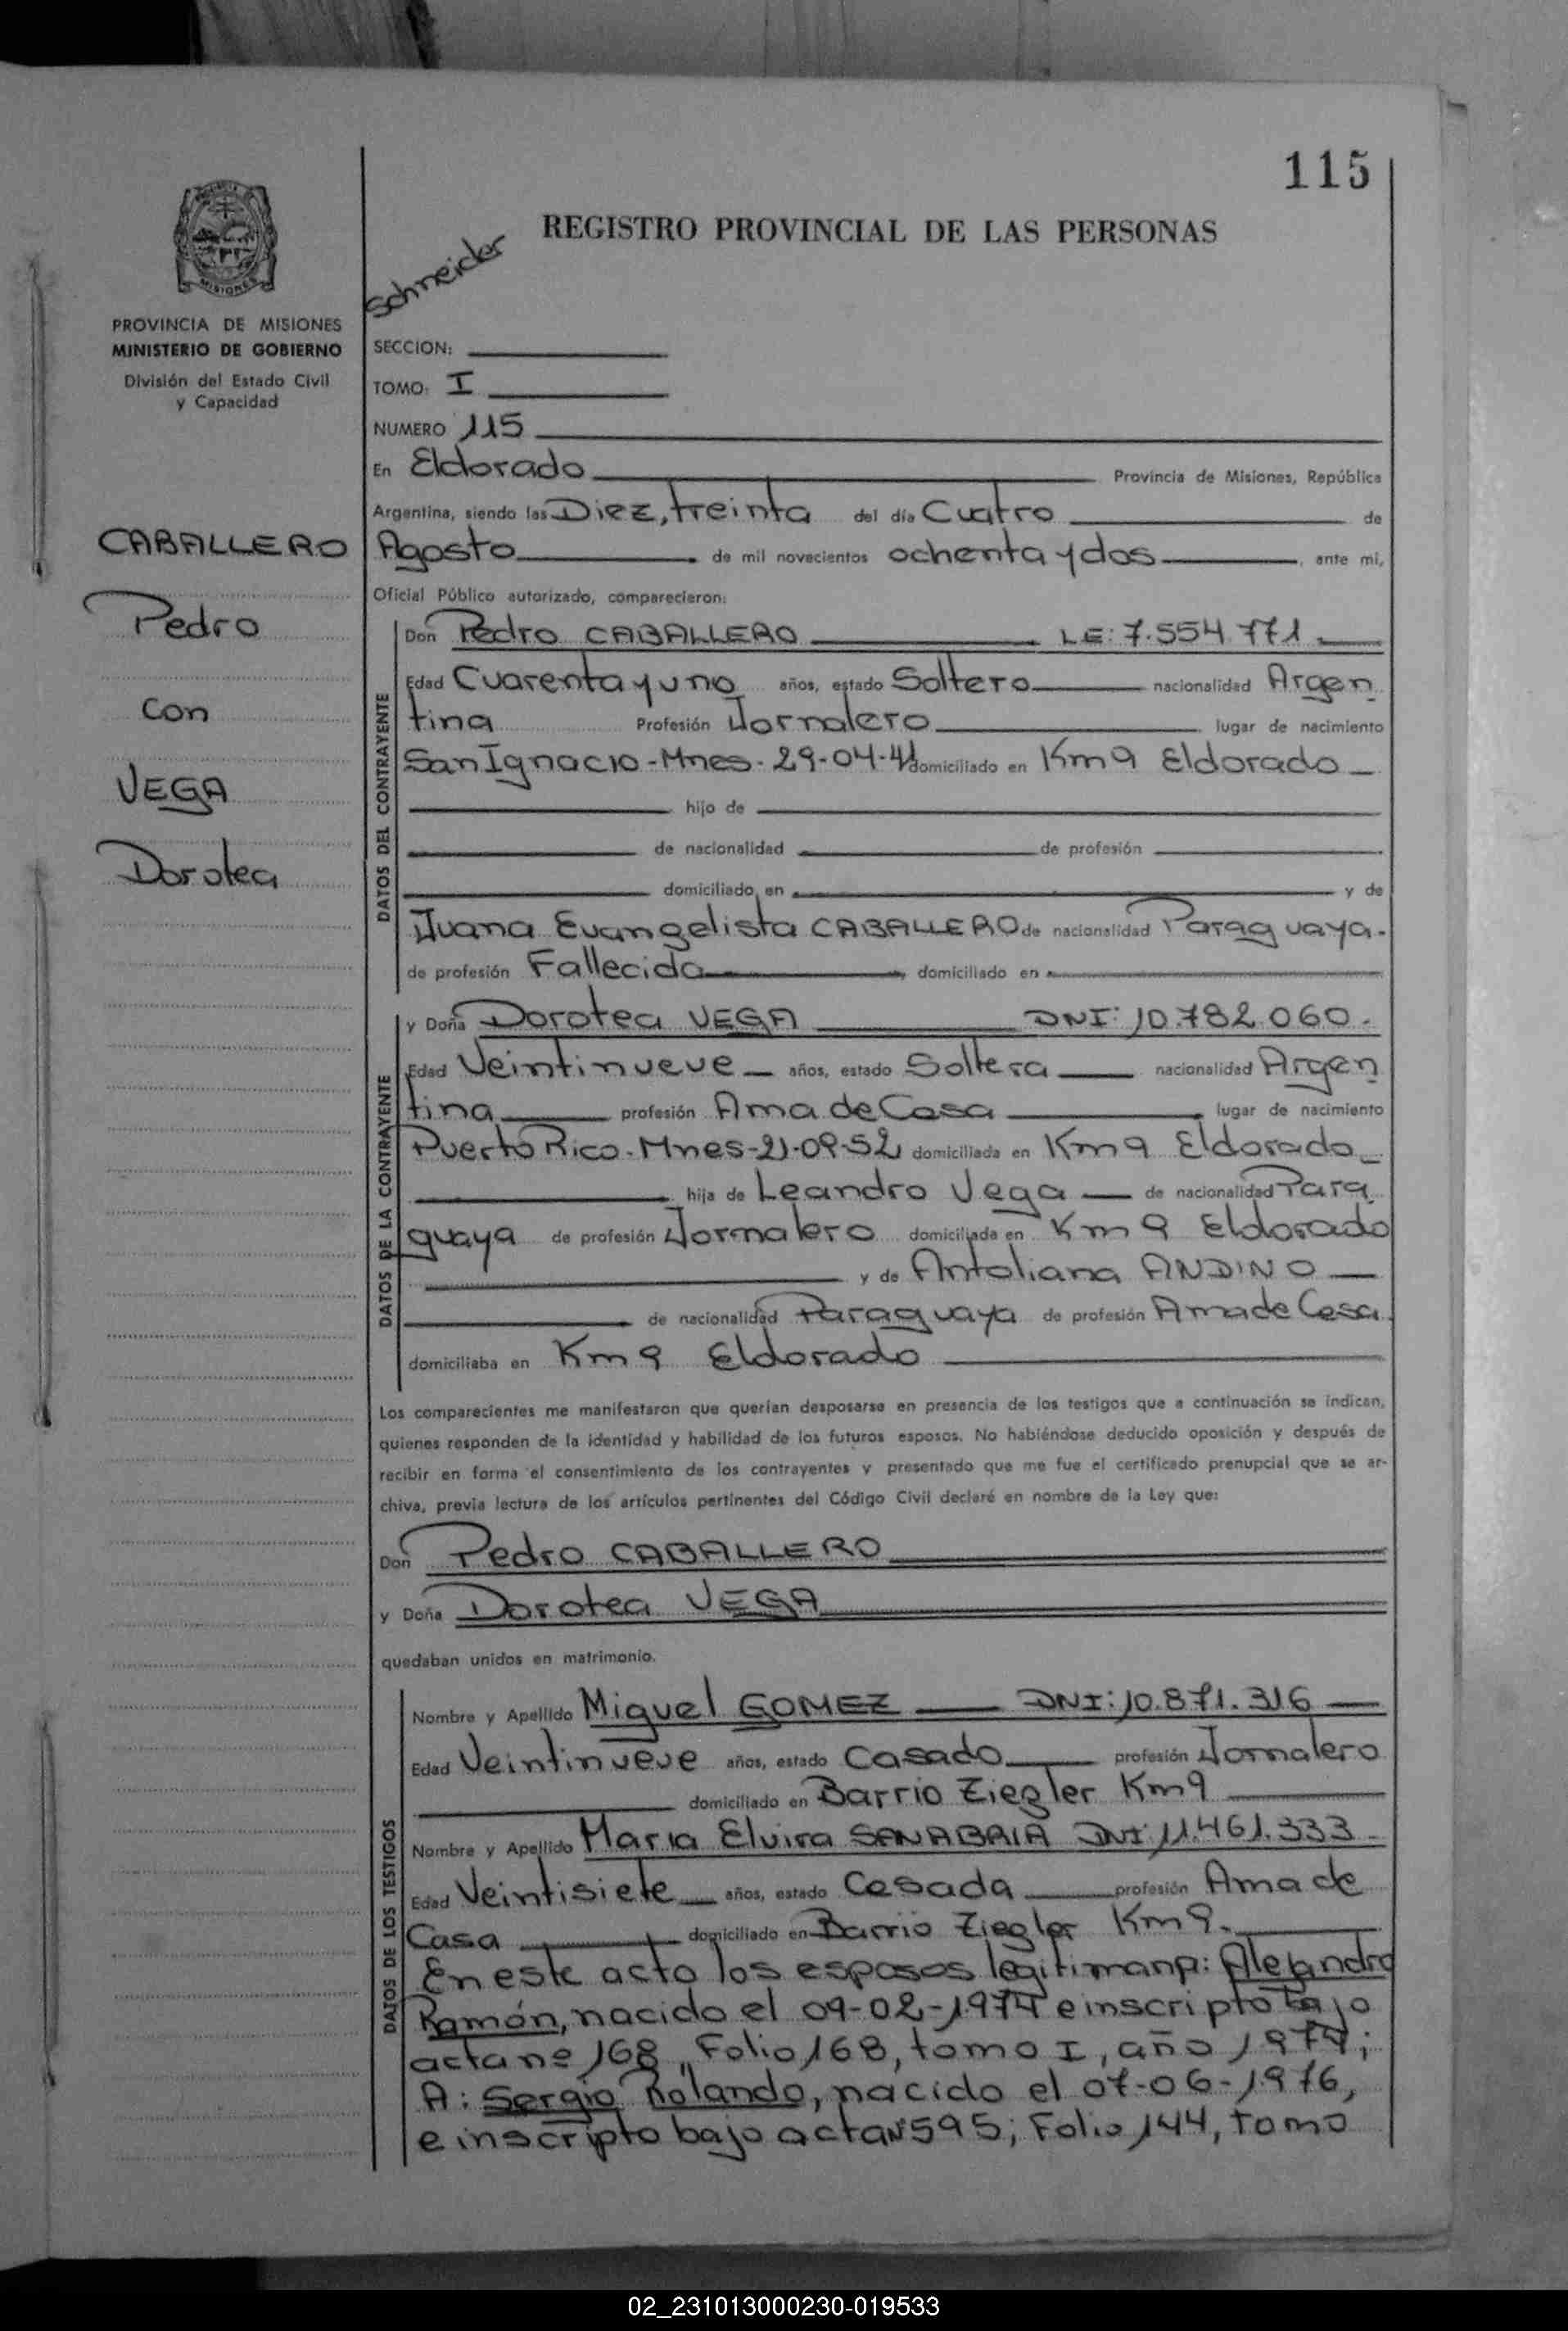 115
REGISTRO PROVINCIAL DE LAS PERSONAS
Schneider
PROVINCIA DE MISIONES
MINISTERIO DE GOBIERNO
División del Estado Civil
y Capacidad
MISIONES
CABALLERO
Pedro
con
VEGA
Dorotea
SECCION:
TOMO: I
NUMERO 115
En Eldorado Provincia de Misiones, República
Argentina, siendo las Diez, treinta del día Cuatro de
Agosto de mil novecientos ochenta y dos, ante mi,
Oficial Público autorizado, comparecieron:
DATOS DEL CONTRAYENTE
Don Pedro CABALLERO LE: 7.554.771
Edad Cuarenta y uno años, estado Soltero nacionalidad Argen
tina Profesión Jornalero lugar de nacimiento
San Ignacio-Mnes-29-04-41 domiciliado en Km 9 Eldorado
hijo de
de nacionalidad de profesión
domiciliado en y de
Juana Evangelista CABALLERO de nacionalidad Paraguaya.
de profesión Fallecida, domiciliado en
DATOS DE LA CONTRAYENTE
y Doña Dorotea VEGA DNI: 10.782.060.
Edad Veintinueve años, estado Soltera nacionalidad Argen
tina profesión Ama de Casa lugar de nacimiento
Puerto Rico-Mnes-21-09-52 domiciliada en Km 9 Eldorado
hija de Leandro Vega de nacionalidad Para
guaya de profesión Jornalero domiciliada en Km 9 Eldorado
y de Antoliana ANDINO
de nacionalidad Paraguaya de profesión Ama de Casa
domiciliaba en Km 9 Eldorado
Los comparecientes me manifestaron que querían desposarse en presencia de los testigos que a continuación se indican,
quienes responden de la identidad y habilidad de los futuros esposos. No habiéndose deducido oposición y después de
recibir en forma el consentimiento de los contrayentes y presentado que me fue el certificado prenupcial que se ar-
chiva, previa lectura de los artículos pertinentes del Código Civil declaré en nombre de la Ley que:
Don Pedro CABALLERO
y Doña Dorotea VEGA
quedaban unidos en matrimonio.
DATOS DE LOS TESTIGOS
Nombre y Apellido Miguel GOMEZ DNI: 10.871.316
Edad Veintinueve años, estado Casado profesión Jornalero
domiciliado en Barrio Ziegler Km 9
Nombre y Apellido Maria Elvira SANABRIA DNI 11.461.333
Edad Veintisiete años, estado Casada profesión Ama de
Casa domiciliado en Barrio Ziegler Km 9.
En este acto los esposos legitiman a: Alejandro
Ramón, nacido el 09-02-1974 e inscripto bajo
acta nº 168, Folio 168, tomo I, año 1974;
A: Sergio Rolando, nacido el 07-06-1976,
e inscripto bajo acta Nº595; Folio 144, tomo
02_231013000230-019533